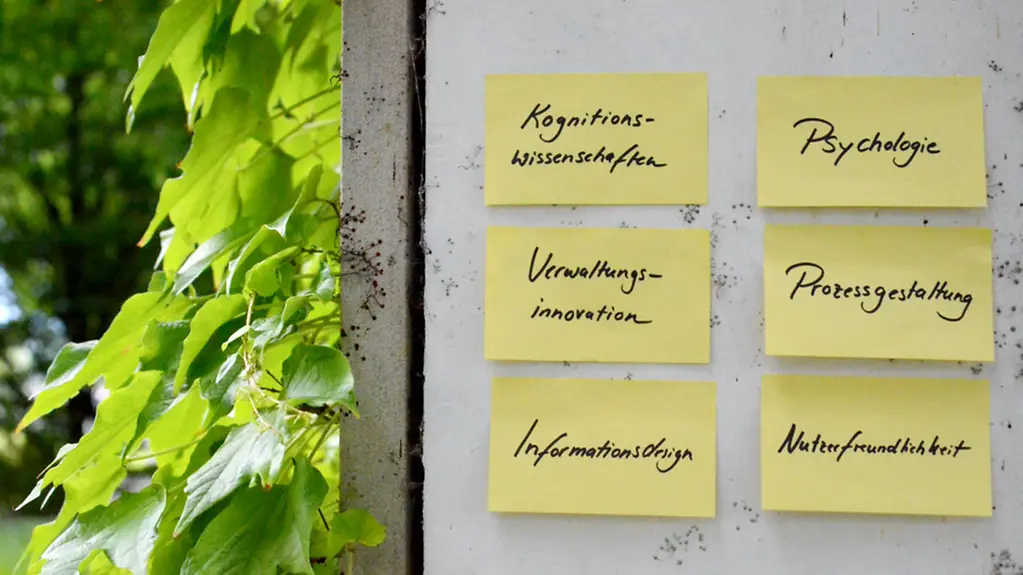 Kognitions-
wissenschaften
Psychologie
Verwaltungs-
innovation
Prozessgestaltung
Informationsdesign
Nutzerfreundlichkeit